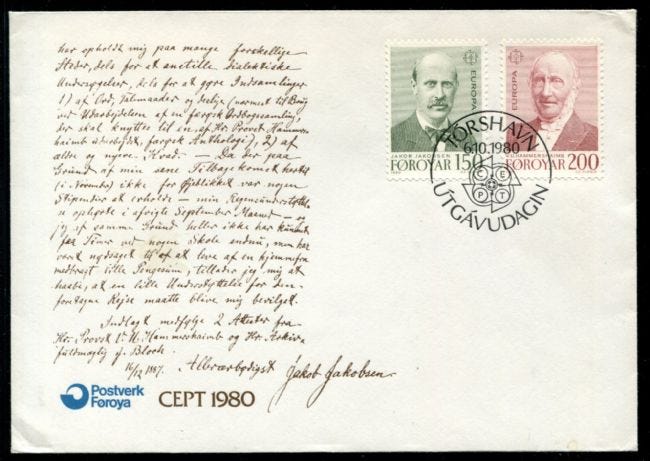 har opholdt mig paa mange forskellige
Steder, dels for at anstille dialektiske
Undersøgelser, dels for at gøre Indsamlinger
1) af Ord, Talemaader og deslige (nærmest til Brug
ved Udarbejdelsen af en færøsk Ordbogssamling,
der skal knyttes til en af Hr. Provst Hammers-
haimb udarbejdet, færøsk Anthologi), 2) af
ældre og nyere Kvad. — Da der paa
Grund af min sene Tilbagekomst hertil
(i November) ikke for Øjeblikket var nogen
Stipendier at erholde — min Regensunderstøttelse
ophørte i afvigte September Maaned — og
jeg af samme Grund heller ikke har kunnet
faa Timer ved nogen Skole endnu, men har
været nødsaget til at leve af en hjemmefra
medbragt lille Pengesum, tillader jeg mig at
haabe, at en lille Understøttelse for den
foretagne Rejse maatte blive mig bevilget.
Indlagt medfølge 2 Attester fra
Hr. Provst V. U. Hammershaimb og Hr. Arkiv-
fuldmægtig J. Bloch.
16/12 1887. Allerærbødigst Jakob Jakobsen.
Postverk
Føroya
CEPT 1980
EUROPA
JAKOB JAKOBSEN
FØROYAR 150
EUROPA
V.U. HAMMERSHAIMB
FØROYAR 200
TÓRSHAVN
6.10.1980
CEPT
ÚTGÁVUDAGIN